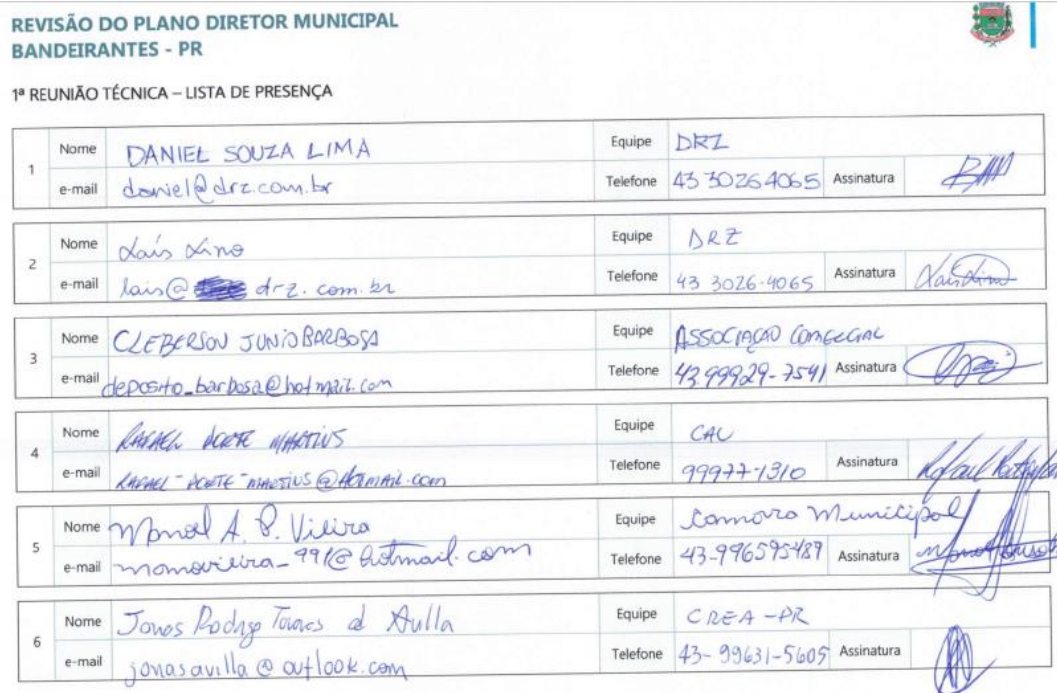 REVISÃO DO PLANO DIRETOR MUNICIPAL
BANDEIRANTES - PR
1ª REUNIÃO TÉCNICA – LISTA DE PRESENÇA
1 Nome DANIEL SOUZA LIMA Equipe DRZ
e-mail daniel@drz.com.br Telefone 43 30264065 Assinatura
2 Nome Laís Lino Equipe DRZ
e-mail lais@ drz.com.br Telefone 43 3026-4065 Assinatura Laís Lino
3 Nome CLEBERSON JUNIO BARBOSA Equipe ASSOCIAÇÃO COMERCIAL
e-mail deposito_barbosa@hotmail.com Telefone 43 99929-7541 Assinatura
4 Nome RAFAEL MARTINS Equipe CAU
e-mail Telefone 99977-1310 Assinatura Rafael
5 Nome Manoel A. P. Vieira Equipe Camara Municipal
e-mail Telefone 43-996595487 Assinatura
6 Nome Jonas Rodrigo Equipe CREA-PR
e-mail jonasavilla@outlook.com Telefone 43-99631-5605 Assinatura